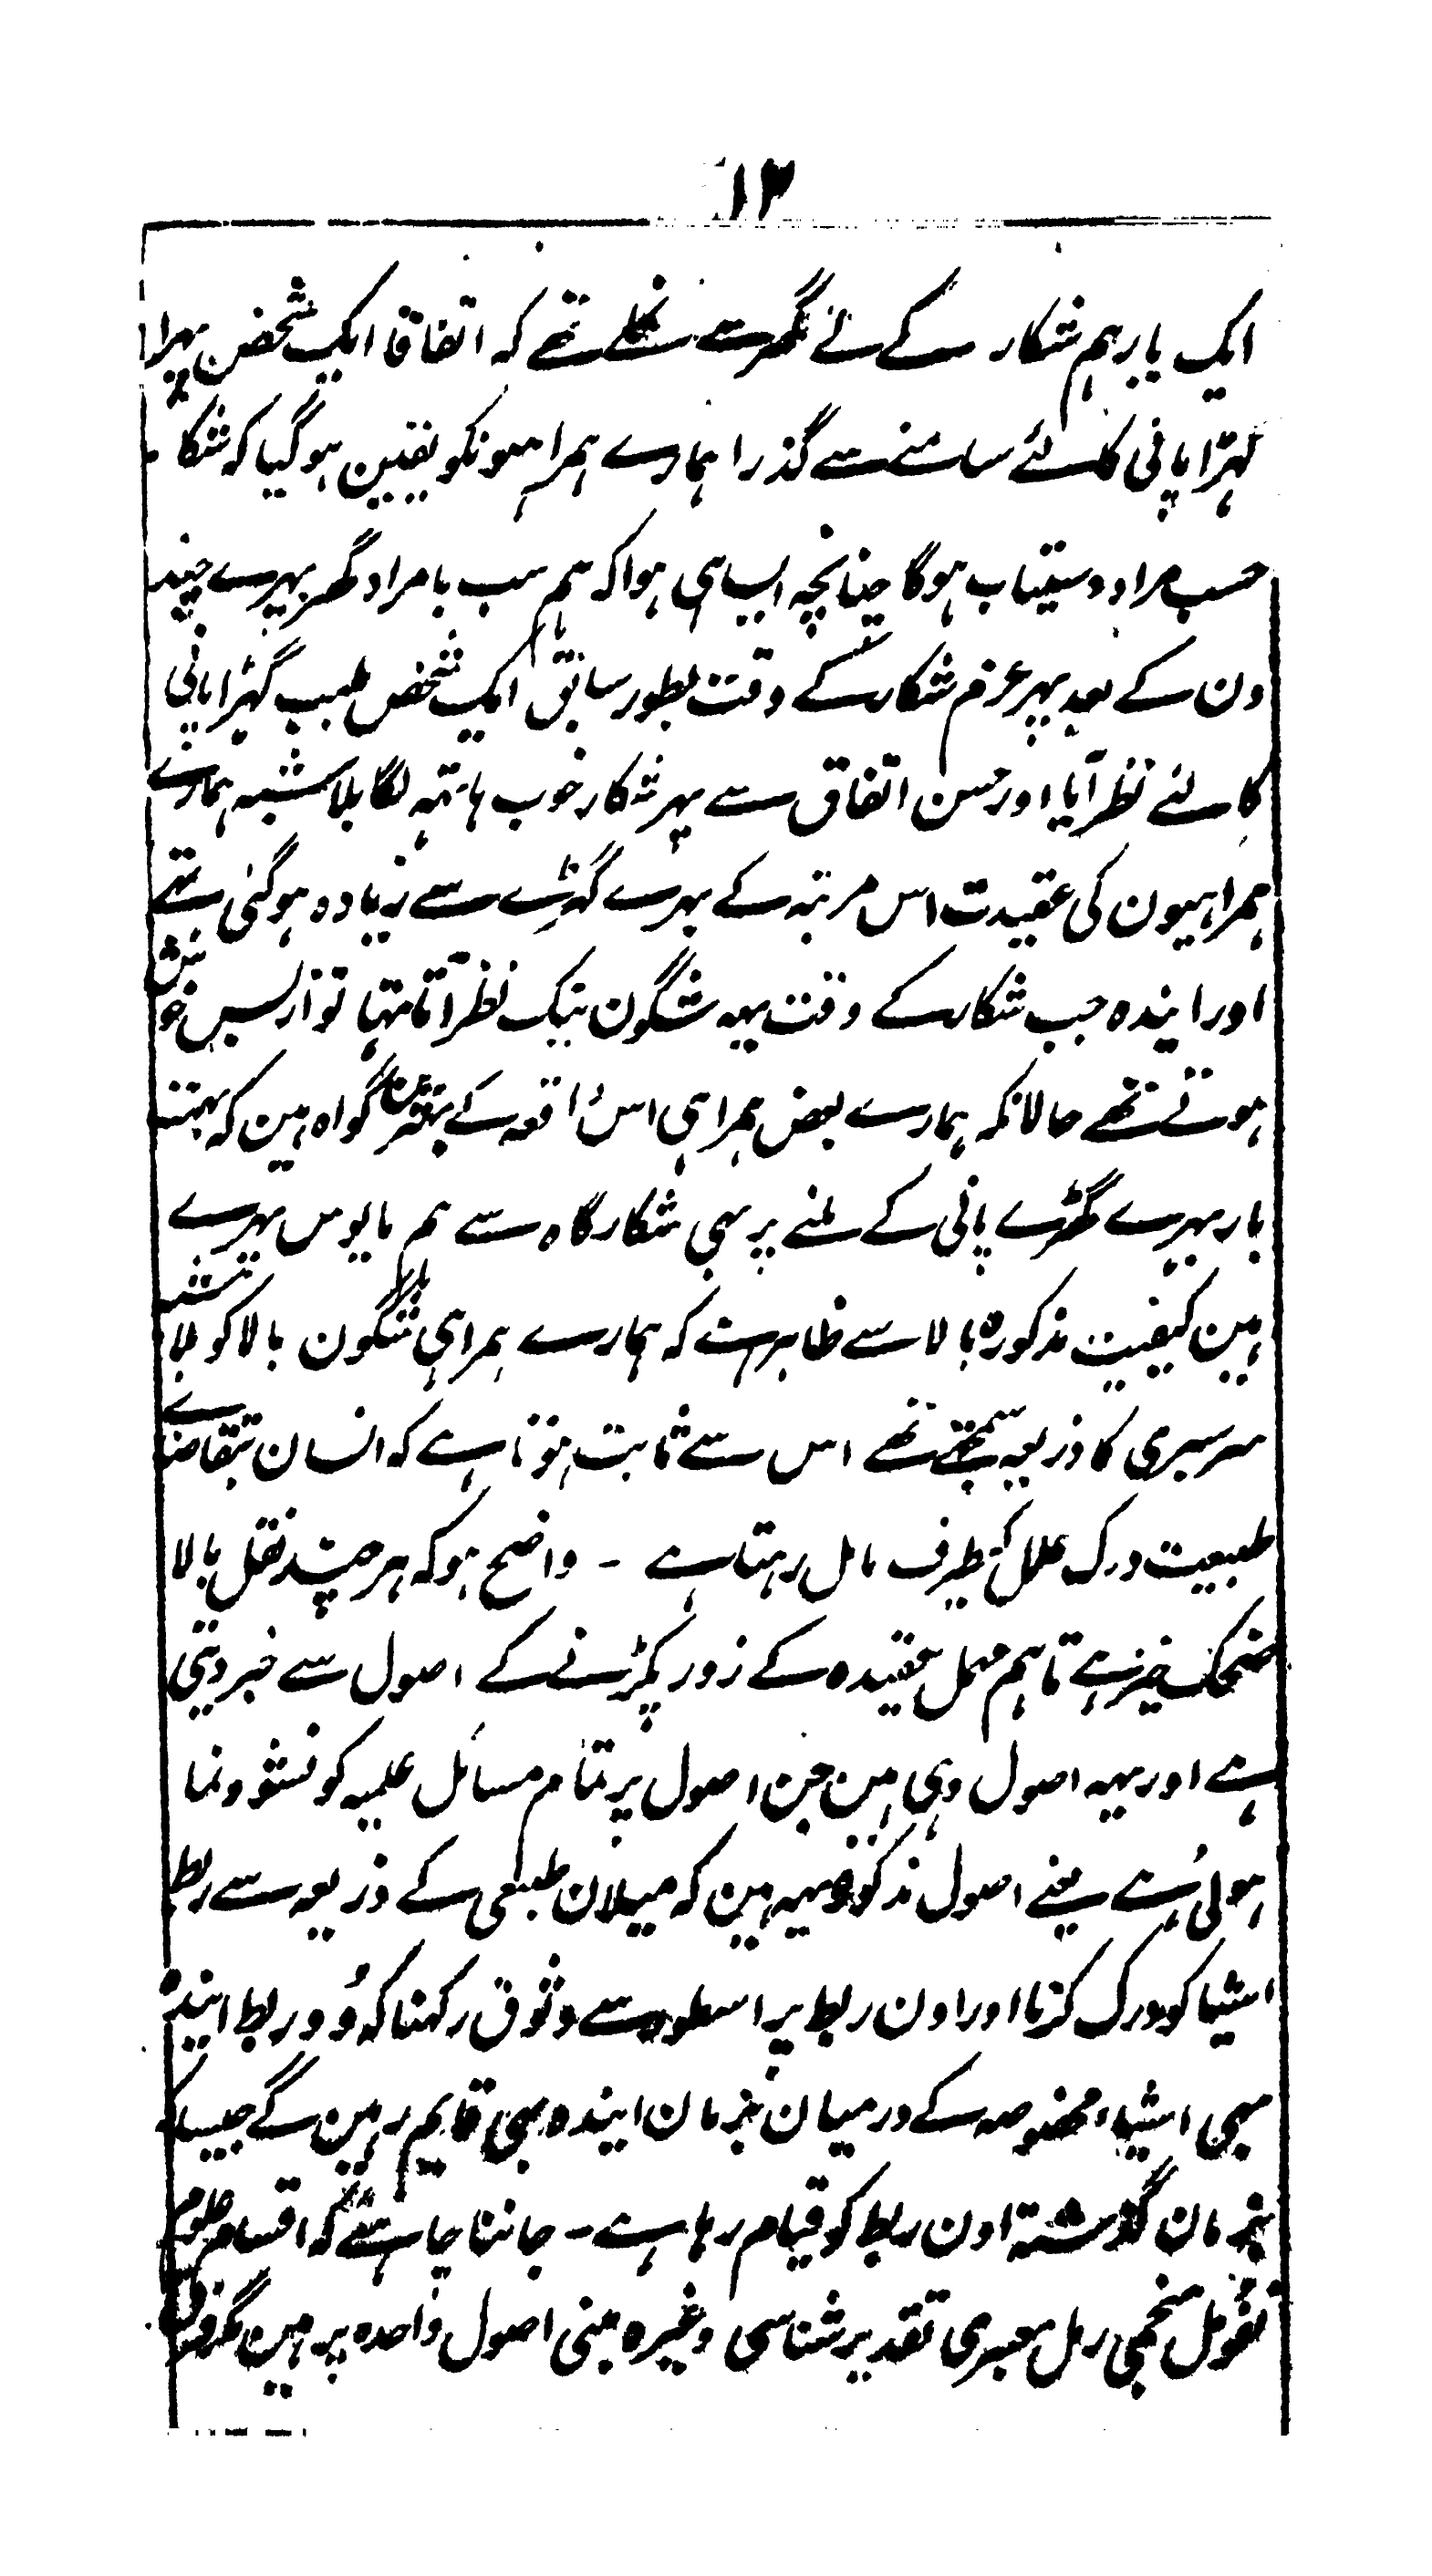 ۱۲
ایک بار ہم شکار کے لئے گھر سے نکلے تھے کہ اتفاقا ایک شخص بہرا
گہڑا پانی کا لئے سامنے سے گذرا ہمارے ہمراہیونکو یقین ہوگیا کہ شکار
حسب مراد دستیاب ہوگا چنانچہ ایسا ہی ہوا کہ ہم سب بامراد گھر پہرے چند
دن کے بعد پہر عزم شکار کے وقت بطور سابق ایک شخص لبب گہڑا پانی
کا لئے نظر آیا اور حسن اتفاق سے پہر شکار خوب ہاتہہ لگا بلا شبہ ہمارے
ہمراہیون کی عقیدت اس مرتبہ کے بہرے گہڑے سے زیادہ ہوگئی تہے
اور ایندہ جب شکار کے وقت یہہ شگون نیک نظر آتا تہا تو از بس خوش
ہوتے تھے حالانکہ ہمارے بعض ہمراہی اس واقعہ کے گواہ ہین کہ بہتنے
بار بہرے گھڑے پانی کے ملنے پر بہی شکارگاہ سے ہم مایوس پہرے
ہین کیفیت مذکورہ بالا سے ظاہر ہے کہ ہمارے ہمراہی شگون بالا کو بلا شبہ
سرسبزی کا ذریعہ سمجھتے تھے اس سے ثابت ہوتا ہے کہ انسان بتقاضاے
طبیعت درک علل کیطرف مایل رہتا ہے - واضح ہو کہ ہر چند نقل بالا
مضحک خیز ہے تاہم مہمل عقیدہ کے زور پکڑنے کے اصول سے خبر دیتی
ہے اور یہہ اصول وہی ہین جن اصول پر تمام مسائل علمیہ کو نشو و نما
ہوئی ہے یعنے اصول مذکورہ یہہ ہین کہ میلان طبیعی کے ذریعہ سے ربط
اشیا کو درک کرنا اور اون ربط پر اسطور سے وثوق رکہنا کہ وُہ ربط ایندہ
بہی اشیاء مخصوصہ کے درمیان بزمان ایندہ بہی قایم رہین گے جیسا کہ
بزمان گذشتہ اون ربط کو قیام رہا ہے - جاننا چاہئے کہ اقسام علوم
تفول منجمی رمل معبری تقدیر شناسی وغیرہ مبنی اصول واحدہ پر ہین مگر